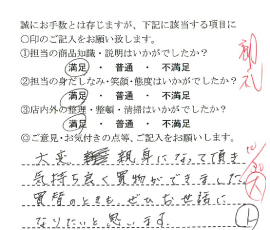 誠にお手数とは存じますが、下記に該当する項目に
○印のご記入をお願い致します。
①担当の商品知識・説明はいかがでしたか?
満足 ・ 普通 ・ 不満足
②担当の身だしなみ・笑顔・態度はいかがですか?
満足 ・ 普通 ・ 不満足
③店内外の整理・整頓・清掃はいかがですか?
満足 ・ 普通 ・ 不満足
◎ご意見・お気付きの点等、ご記入をお願いします。
大変 親身になって頂き
気持ち良く買物ができました
買替のときも ぜひお世話に
なりたいと思います。